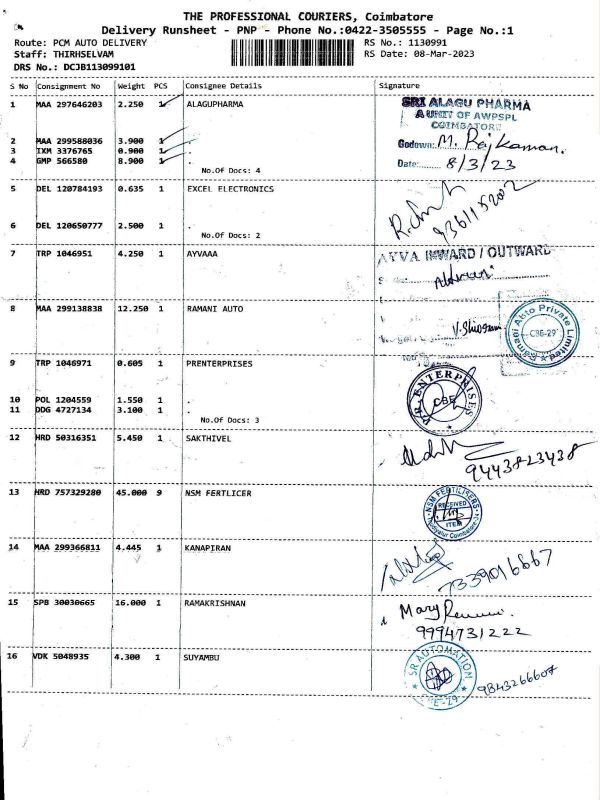 THE PROFESSIONAL COURIERS, Coimbatore
Delivery Runsheet - PNP - Phone No.:0422-3505555 - Page No.:1
Route: PCM AUTO DELIVERY RS No.: 1130991
Staff: THIRHSELVAM RS Date: 08-Mar-2023
DRS No.: DCJB113099101
S No Consignment No Weight PCS Consignee Details Signature
1 MAA 297646203 2.250 1 ALAGUPHARMA
SRI ALAGU PHARMA
A UNIT OF AWPSPL
COIMBATORE
2 MAA 299588036 3.900 1 .
3 IXM 3376765 0.900 1 .
Godown: M. Rajkaman.
4 GMP 566580 8.900 1 .
No.Of Docs: 4
Date: 8/3/23
5 DEL 120784193 0.635 1 EXCEL ELECTRONICS
6 DEL 120650777 2.500 1 .
No.Of Docs: 2
7 TRP 1046951 4.250 1 AYVAAA
AYVA INWARD / OUTWARD
8 MAA 299138838 12.250 1 RAMANI AUTO
Ramani Auto Private Limited
CBE-29
9 TRP 1046971 0.605 1 PRENTERPRISES
ENTERPRISES
CBE
10 POL 1204559 1.550 1 .
11 DDG 4727134 3.100 1 .
No.Of Docs: 3
12 HRD 50316351 5.450 1 SAKTHIVEL
9443823438
13 HRD 757329280 45.000 9 NSM FERTLICER
NSM FERTILISERS
RECEIVED
14 MAA 299366811 4.445 1 KANAPIRAN
7339016667
15 SPB 30030665 16.000 1 RAMAKRISHNAN
Mary
9994731222
16 VDK 5048935 4.300 1 SUYAMBU
SR AUTOMATION
9843266607